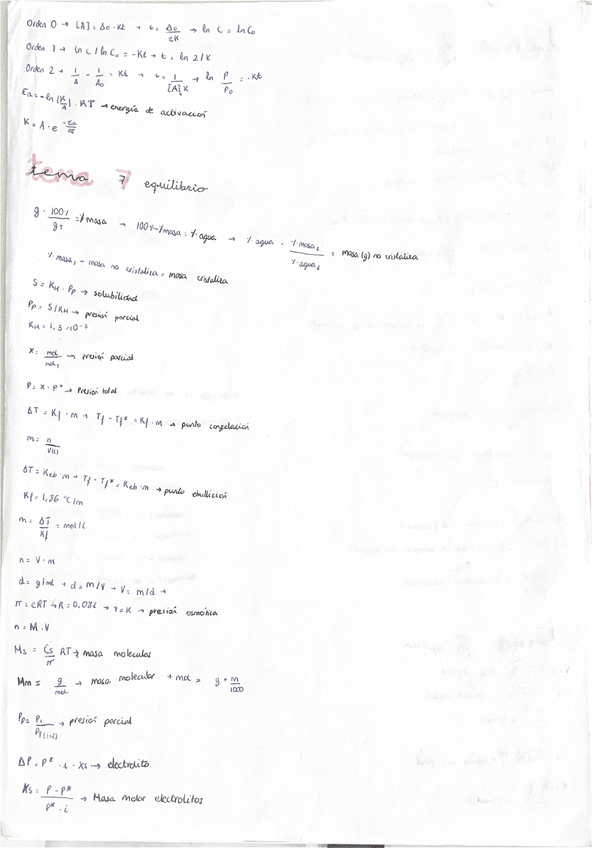 Orden 0 → [A] = A0 - Kt → t = A0/2K → ln C = ln C0
Orden 1 → ln C / ln C0 = -Kt → t = ln 2/K
Orden 2 → 1/A - 1/A0 = Kt → t = 1/[A]K → ln P/P0 = -Kt
Ea = -ln (K/A) · RT → energía de activación
K = A · e^(-Ea/RT)
tema 7 equilibrio
g · 100%/gT = % masa → 100% - % masa = % agua → % agua · % masa2/% agua2 = masa (g) no cristaliza
% masa1 - masa no cristaliza = masa cristaliza
S = KH · Pp → solubilidad
Pp = S/KH → presión parcial
KH = 1,3 · 10^-3
X = mol/molT → presión parcial
P = X · P* → Presión total
ΔT = Kf · m → Tf - Tf* = Kf · m → punto congelación
m = n/V(l)
ΔT = Keb · m → Tf - Tf* = Keb · m → punto ebullición
Kf = 1,86 °C/m
m = ΔT/Kf = mol/L
n = V · m
d = g/mL → d = m/V → V = m/d →
π = cRT → R = 0.082 → t = K → presión osmótica
n = M · V
Ms = Cs/π RT → masa molecular
Mm = g/mol → masa molecular → mol = g · m/1000
→ presión parcial
ΔP = P* · i · Xs → electrolito
Xs = P - P*/P* · i → Masa molar electrolitos